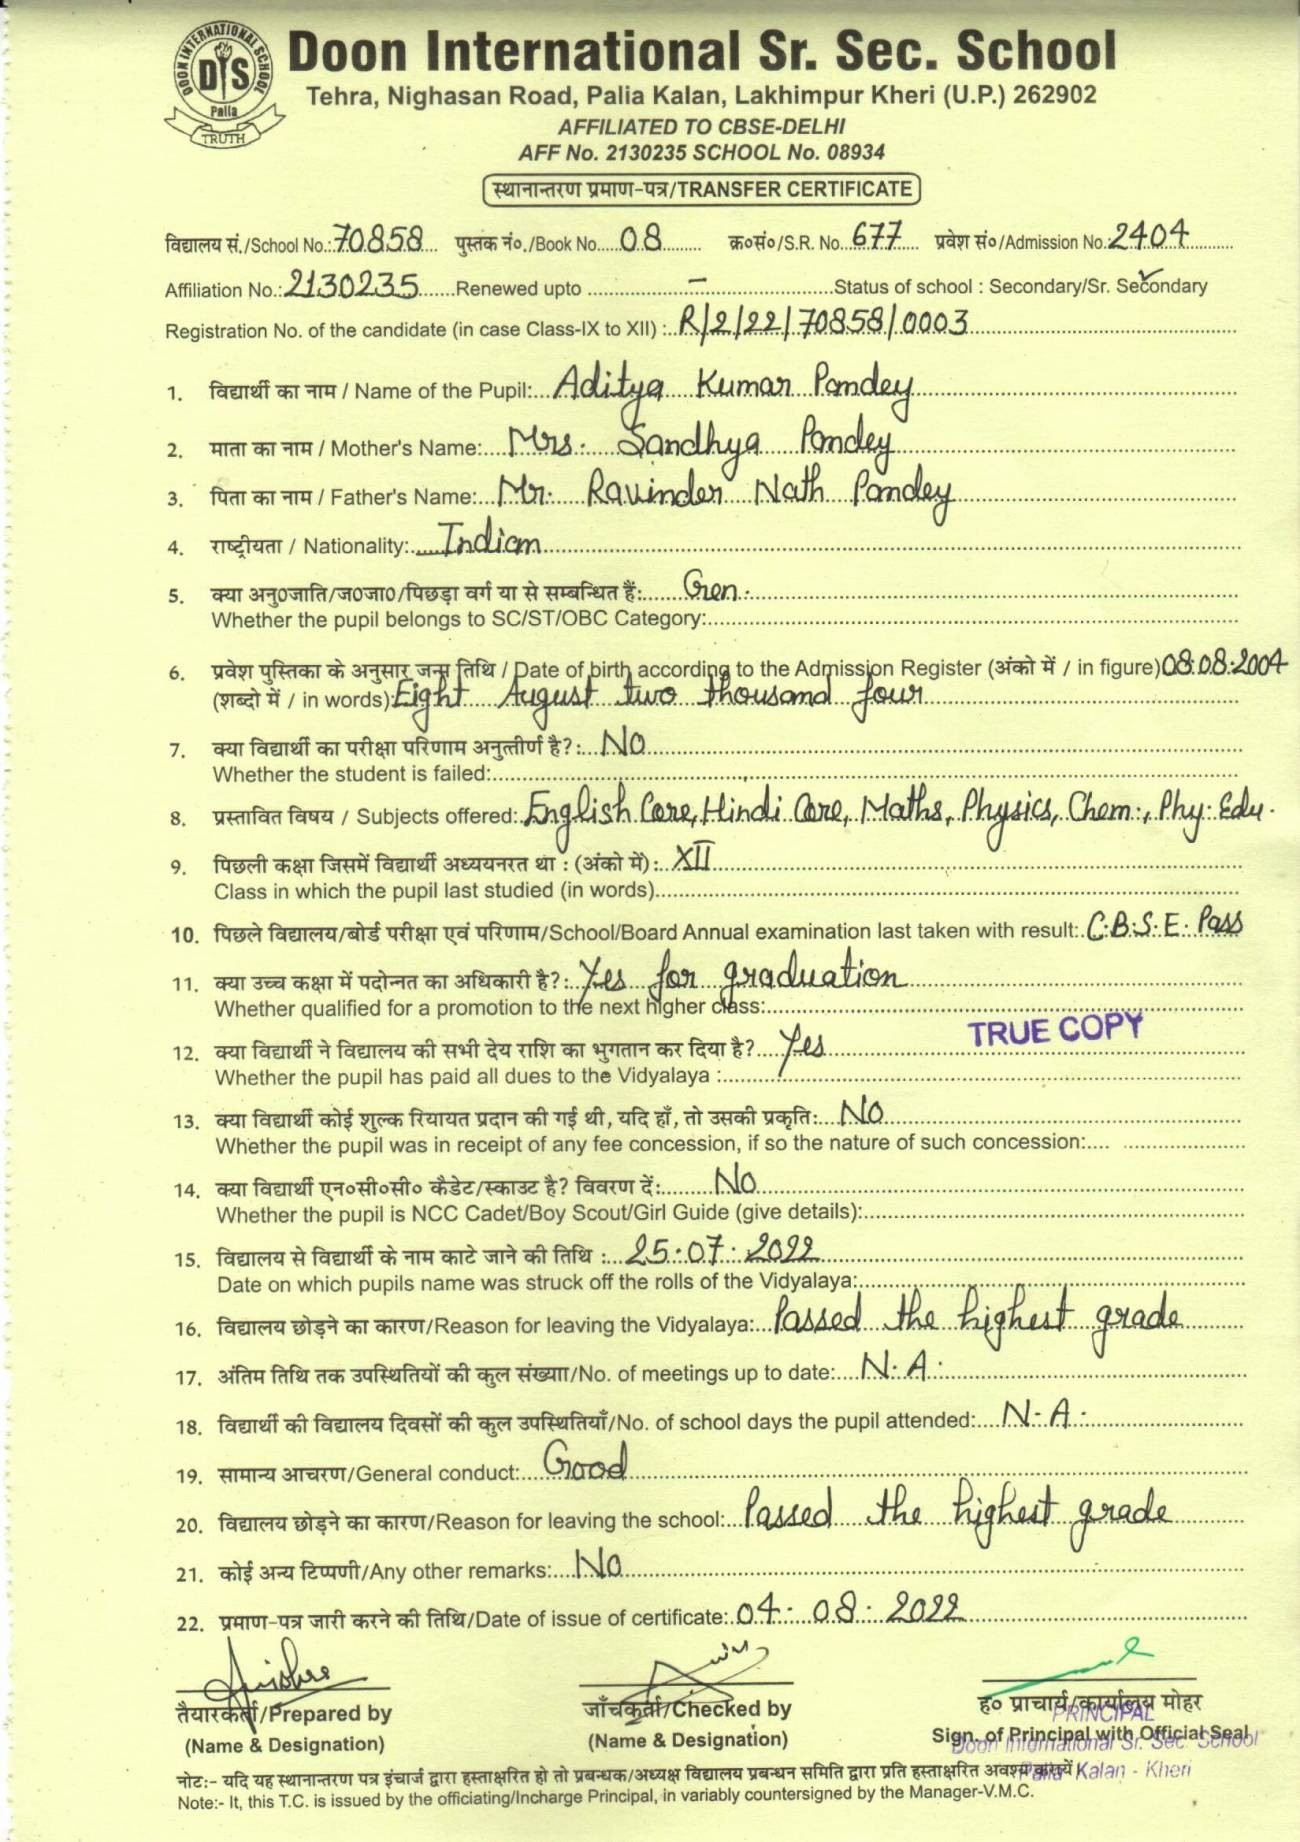 DOON INTERNATIONAL SCHOOL
DIS
Palia
TRUTH
Doon International Sr. Sec. School
Tehra, Nighasan Road, Palia Kalan, Lakhimpur Kheri (U.P.) 262902
AFFILIATED TO CBSE-DELHI
AFF No. 2130235 SCHOOL No. 08934
स्थानान्तरण प्रमाण-पत्र/TRANSFER CERTIFICATE
विद्यालय सं./School No.: 70858 पुस्तक नं०./Book No. 08 क्र०सं०/S.R. No. 677 प्रवेश सं०/Admission No. 2404
Affiliation No.: 2130235 Renewed upto - Status of school : Secondary/Sr. Secondary
Registration No. of the candidate (in case Class-IX to XII) : R/2/22/70858/0003
1. विद्यार्थी का नाम / Name of the Pupil: Aditya Kumar Pandey
2. माता का नाम / Mother's Name: Mrs. Sandhya Pandey
3. पिता का नाम / Father's Name: Mr. Ravinder Nath Pandey
4. राष्ट्रीयता / Nationality: Indian
5. क्या अनु0जाति/ज0जा0/पिछड़ा वर्ग या से सम्बन्धित हैं: Gen.
Whether the pupil belongs to SC/ST/OBC Category:
6. प्रवेश पुस्तिका के अनुसार जन्म तिथि / Date of birth according to the Admission Register (अंको में / in figure) 08.08.2004
(शब्दो में / in words) Eight August two thousand four
7. क्या विद्यार्थी का परीक्षा परिणाम अनुत्तीर्ण है?: NO
Whether the student is failed:
8. प्रस्तावित विषय / Subjects offered: English Core, Hindi Core, Maths, Physics, Chem., Phy. Edu.
9. पिछली कक्षा जिसमें विद्यार्थी अध्ययनरत था : (अंको में): XII
Class in which the pupil last studied (in words)
10. पिछले विद्यालय/बोर्ड परीक्षा एवं परिणाम/School/Board Annual examination last taken with result: C.B.S.E. Pass
11. क्या उच्च कक्षा में पदोन्नत का अधिकारी है?: Yes for graduation
Whether qualified for a promotion to the next higher class:
TRUE COPY
12. क्या विद्यार्थी ने विद्यालय की सभी देय राशि का भुगतान कर दिया है? Yes
Whether the pupil has paid all dues to the Vidyalaya :
13. क्या विद्यार्थी कोई शुल्क रियायत प्रदान की गई थी, यदि हाँ, तो उसकी प्रकृति: NO
Whether the pupil was in receipt of any fee concession, if so the nature of such concession:
14. क्या विद्यार्थी एन०सी०सी० कैडेट/स्काउट है? विवरण दें: No
Whether the pupil is NCC Cadet/Boy Scout/Girl Guide (give details):
15. विद्यालय से विद्यार्थी के नाम काटे जाने की तिथि : 25.07.2022
Date on which pupils name was struck off the rolls of the Vidyalaya:
16. विद्यालय छोड़ने का कारण/Reason for leaving the Vidyalaya: Passed the highest grade
17. अंतिम तिथि तक उपस्थितियों की कुल संख्या/No. of meetings up to date: N.A.
18. विद्यार्थी की विद्यालय दिवसों की कुल उपस्थितियाँ/No. of school days the pupil attended: N.A.
19. सामान्य आचरण/General conduct: Good
20. विद्यालय छोड़ने का कारण/Reason for leaving the school: Passed the highest grade
21. कोई अन्य टिप्पणी/Any other remarks: No
22. प्रमाण-पत्र जारी करने की तिथि/Date of issue of certificate: 04.08.2022
तैयारकर्ता/Prepared by जाँचकर्ता/Checked by ह० प्राचार्य/कार्यालय मोहर
PRINCIPAL
(Name & Designation) (Name & Designation) Sign. of Principal with Official Seal
Doon International Sr. Sec. School
Palia Kalan - Kheri
नोटः- यदि यह स्थानान्तरण पत्र इंचार्ज द्वारा हस्ताक्षरित हो तो प्रबन्धक/अध्यक्ष विद्यालय प्रबन्धन समिति द्वारा प्रति हस्ताक्षरित अवश्य करायें।
Note:- It, this T.C. is issued by the officiating/Incharge Principal, in variably countersigned by the Manager-V.M.C.